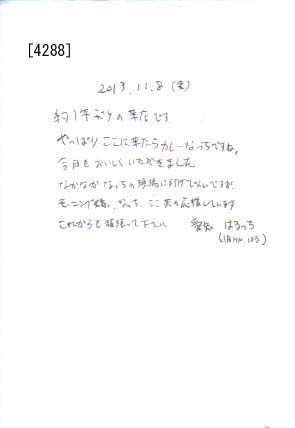 [4288]
2013.11.8 (金)
約1年ぶりの来店です
やっぱりここに来たらカレーなっちですね。
今日もおいしくいただきました
なかなかなっちの現場に行けてないですが
モーニング娘。、なっち、ここ共々応援しています
これからも頑張って下さい 愛知 はるっち
(旧HN.